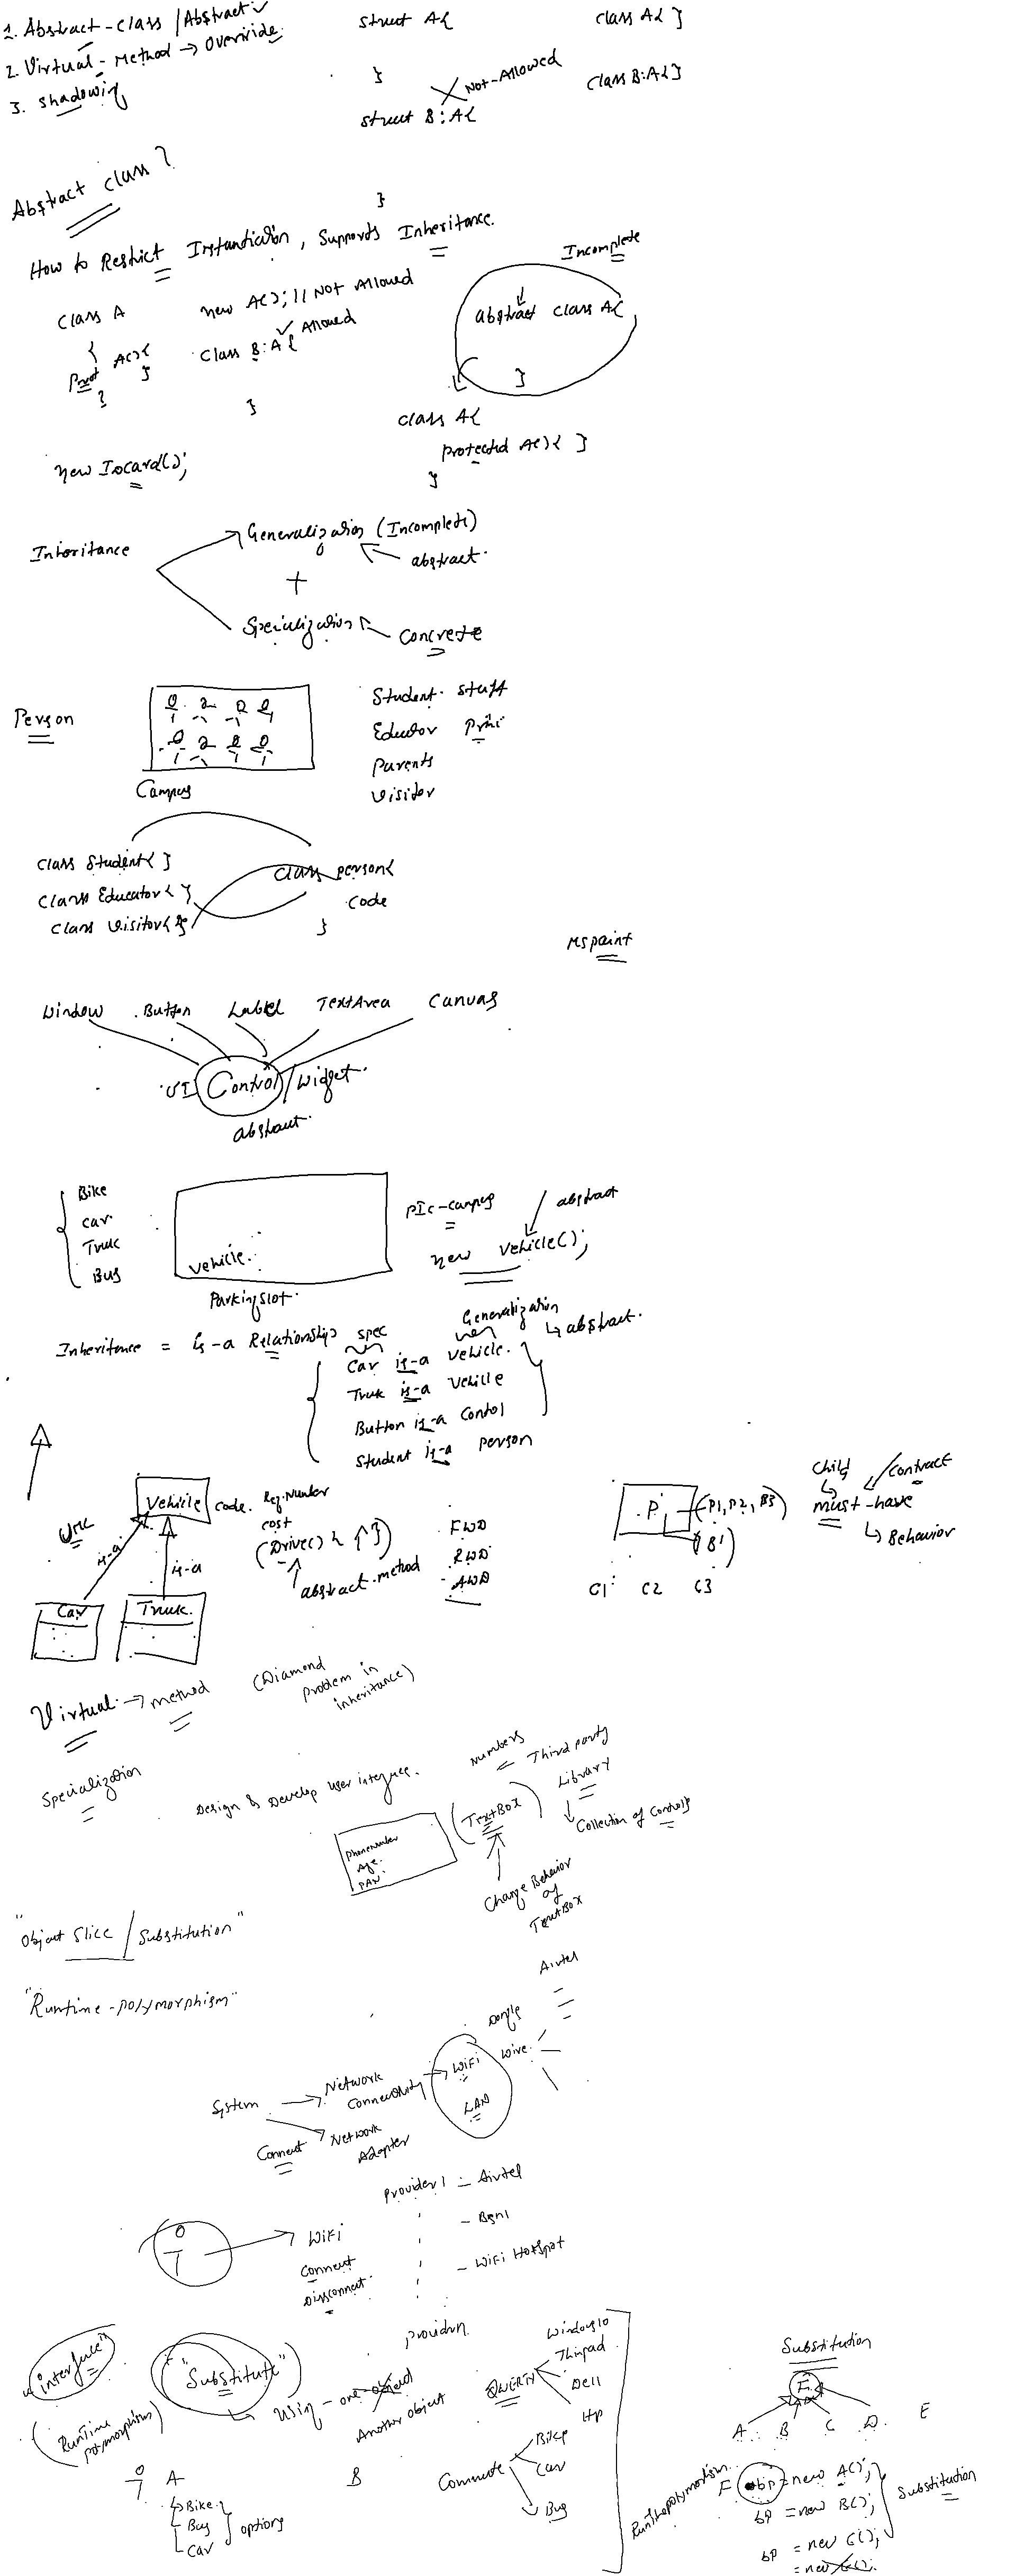 1. Abstract-class / Abstract
2. Virtual-Method → Override
3. Shadowing
struct A{
}
struct B:A{
}
Not-Allowed
class A{ }
class B:A{ }
Abstract class?
How to Restrict Instantiation, Supports Inheritance.
class A
{
A(){
}
}
new A(); // Not Allowed
class B:A{
}
Allowed
Incomplete
abstract class A{
}
class A{
protected A(){ }
}
new
Inheritance
Generalization (Incomplete)
abstract.
+
Specialization
Concrete
Person
Campus
Student. Staff
Parents
Visitor
class Student{ }
class Educator{ }
class Visitor{ }
class person{
code
}
MSpaint
Window Button Label TextArea Canvas
UI Control/Widget.
abstract.
Bike
Car
Truk
Bus
vehicle.
Parkingslot.
abstract
new vehicle();
Inheritance = is-a Relationship
spec
Generalization
abstract.
Car is-a Vehicle.
Truk is-a Vehicle
Button is-a Control
Student is-a person
Vehicle
code.
Reg.Number
cost
(Drive() { })
abstract.method
FWD
RWD
AWD
is-a
is-a
Car
Truck.
P
(P1, P2, P3)
(B1)
C1 C2 C3
Child
Contract
must-have
Behavior
Virtual → method
(Diamond
Problem in
inheritance)
Specialization
Design & Develop user interface.
Numbers
Third party
Library
Collection of Controls
(TextBox)
Phonenumber
Age.
PAN
Change Behavior
of
TextBox
"Object Slice / Substitution"
"Runtime-polymorphism"
Airtel
Dongle
WiFi
Wire.
LAN
System
Network
Connectivity
Connect
Network
Adapter
Provider1 - Airtel
- Bsnl
- WiFi Hotspot
WiFi
Connect
Disconnect.
"interface"
(RunTime
polymorphism)
"Substitute"
Using-one-object
Another object
A
Bike
Bus
Car
options
B
QWERTY
Windows10
Thinpad
Dell
Hp
Commute
Bike
Car
Bus
Substitution
F
A B C D E
Runtimepolymorphism
F bp = new A();
bp = new B();
bp = new C();
Substitution